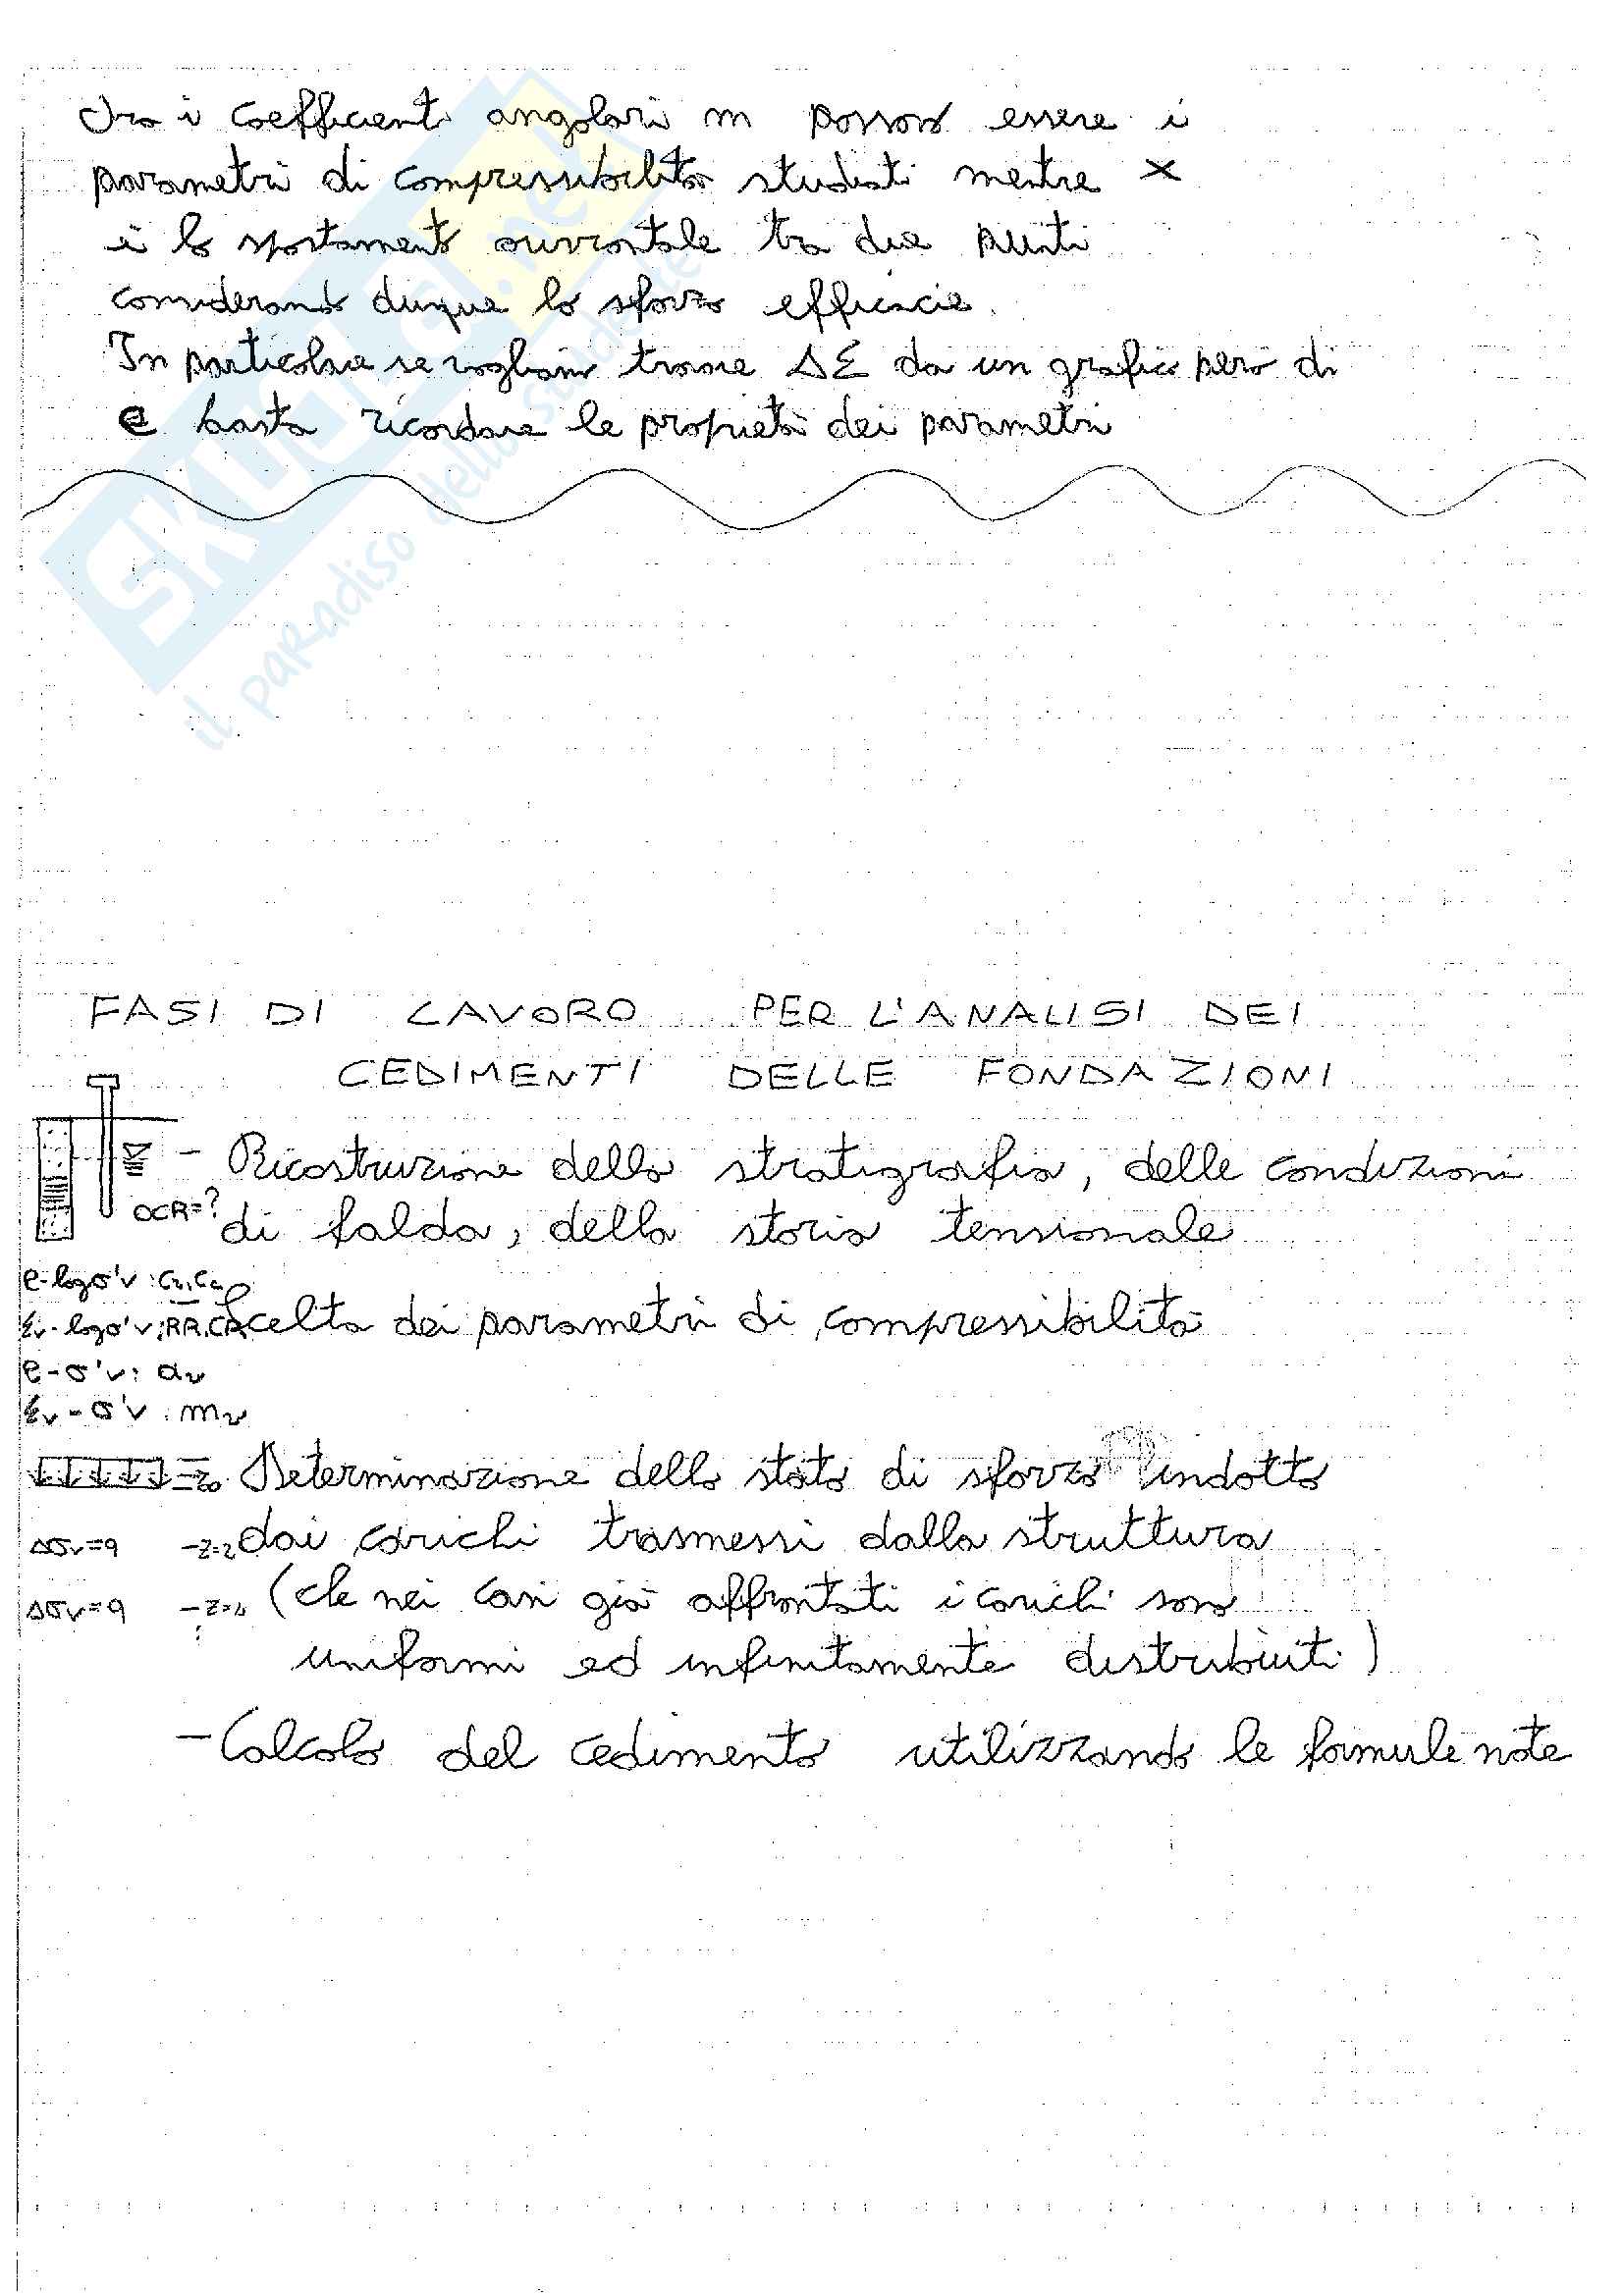 Ora i coefficienti angolari m possono essere i
parametri di compressibilità studiati mentre x
è lo spostamento orizzontale tra due punti
considerando dunque lo sforzo efficacie.
In particolare se vogliamo trovare Δε da un grafico però di
e basta ricordare le proprietà dei parametri
SKUOLA.net
il paradiso dello studente
FASI DI LAVORO PER L'ANALISI DEI
CEDIMENTI DELLE FONDAZIONI
- Ricostruzione della stratigrafia, delle condizioni
OCR=?
di falda, della storia tensionale
e-logσ'v : Cr, Cc
- Scelta dei parametri di compressibilità
εv-logσ'v: RR, CR
e-σ'v: av
εv-σ'v: mv
- Determinazione dello stato di sforzo indotto
Δσv=q -z=2 dai carichi trasmessi dalla struttura
Δσv=q (che nei casi già affrontati i carichi sono
uniformi ed infinitamente distribuiti)
- Calcolo del cedimento utilizzando le formule note